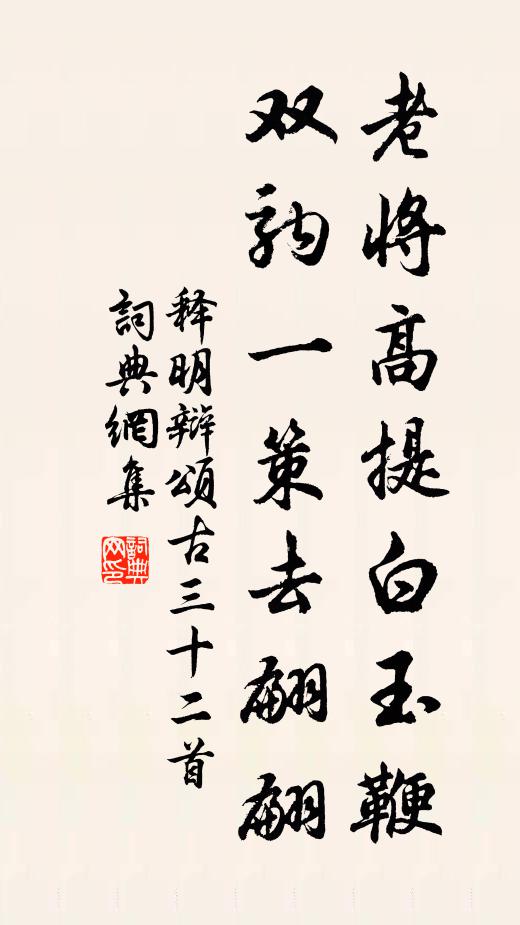 老將高提白玉鞭
双韵一策去翩翩
释明辯頌古三十二首
詞典網集
詞典网印